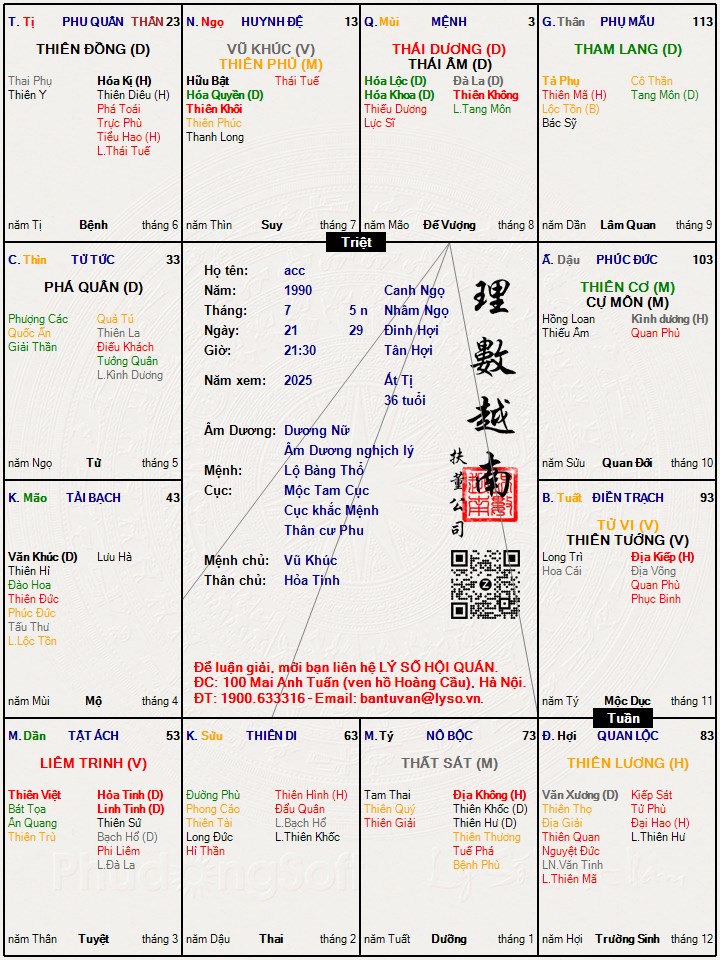 T. Tị PHU QUÂN THÂN 23
THIÊN ĐỒNG (D)
Thai Phụ
Thiên Y
Hóa Kị (H)
Thiên Diêu (H)
Phá Toái
Trực Phù
Tiểu Hao (H)
L.Thái Tuế
năm Tị Bệnh tháng 6
N. Ngọ HUYNH ĐỆ 13
VŨ KHÚC (V)
THIÊN PHỦ (M)
Hữu Bật
Hóa Quyền (D)
Thiên Khôi
Thiên Phúc
Thanh Long
Thái Tuế
năm Thìn Suy tháng 7
Q. Mùi MỆNH 3
THÁI DƯƠNG (D)
THÁI ÂM (D)
Hóa Lộc (D)
Hóa Khoa (D)
Thiếu Dương
Lực Sĩ
Đà La (D)
Thiên Không
L.Tang Môn
năm Mão Đế Vượng tháng 8
G. Thân PHỤ MẪU 113
THAM LANG (D)
Tả Phụ
Thiên Mã (H)
Lộc Tồn (B)
Bác Sỹ
Cô Thần
Tang Môn (D)
năm Dần Lâm Quan tháng 9
Triệt
C. Thìn TỬ TỨC 33
PHÁ QUÂN (D)
Phượng Các
Quốc Ấn
Giải Thần
Quả Tú
Thiên La
Điếu Khách
Tướng Quân
L.Kình Dương
năm Ngọ Tử tháng 5
Họ tên: acc
Năm: 1990 Canh Ngọ
Tháng: 7 5 n Nhâm Ngọ
Ngày: 21 29 Đinh Hợi
Giờ: 21:30 Tân Hợi
Năm xem: 2025 Ất Tị
36 tuổi
Âm Dương: Dương Nữ
Âm Dương nghịch lý
Mệnh: Lộ Bàng Thổ
Cục: Mộc Tam Cục
Cục khắc Mệnh
Thân cư Phu
Mệnh chủ: Vũ Khúc
Thân chủ: Hỏa Tinh
理數越南
扶董公司
Để luận giải, mời bạn liên hệ LÝ SỐ HỘI QUÁN.
ĐC: 100 Mai Anh Tuấn (ven hồ Hoàng Cầu), Hà Nội.
ĐT: 1900.633316 - Email: bantuvan@lyso.vn.
Ấ. Dậu PHÚC ĐỨC 103
THIÊN CƠ (M)
CỰ MÔN (M)
Hồng Loan
Thiếu Âm
Kình dương (H)
Quan Phủ
năm Sửu Quan Đới tháng 10
K. Mão TÀI BẠCH 43
Văn Khúc (D)
Thiên Hỉ
Đào Hoa
Thiên Đức
Phúc Đức
Tấu Thư
L.Lộc Tồn
Lưu Hà
năm Mùi Mộ tháng 4
B. Tuất ĐIỀN TRẠCH 93
TỬ VI (V)
THIÊN TƯỚNG (V)
Long Trì
Hoa Cái
Địa Kiếp (H)
Địa Võng
Quan Phù
Phục Binh
năm Tý Mộc Dục tháng 11
Tuần
M. Dần TẬT ÁCH 53
LIÊM TRINH (V)
Thiên Việt
Bát Tọa
Ân Quang
Thiên Trù
Hỏa Tinh (D)
Linh Tinh (D)
Thiên Sứ
Bạch Hổ (D)
Phi Liêm
L.Đà La
năm Thân Tuyệt tháng 3
K. Sửu THIÊN DI 63
Đường Phù
Phong Cáo
Thiên Tài
Long Đức
Hỉ Thần
Thiên Hình (H)
Đẩu Quân
L.Bạch Hổ
L.Thiên Khốc
năm Dậu Thai tháng 2
M. Tý NÔ BỘC 73
THẤT SÁT (M)
Tam Thai
Thiên Quý
Thiên Giải
Địa Không (H)
Thiên Khốc (D)
Thiên Hư (D)
Thiên Thương
Tuế Phá
Bệnh Phù
năm Tuất Dưỡng tháng 1
Đ. Hợi QUAN LỘC 83
THIÊN LƯƠNG (H)
Văn Xương (D)
Thiên Thọ
Địa Giải
Thiên Quan
Nguyệt Đức
LN.Văn Tinh
L.Thiên Mã
Kiếp Sát
Tử Phù
Đại Hao (H)
L.Thiên Hư
năm Hợi Trường Sinh tháng 12